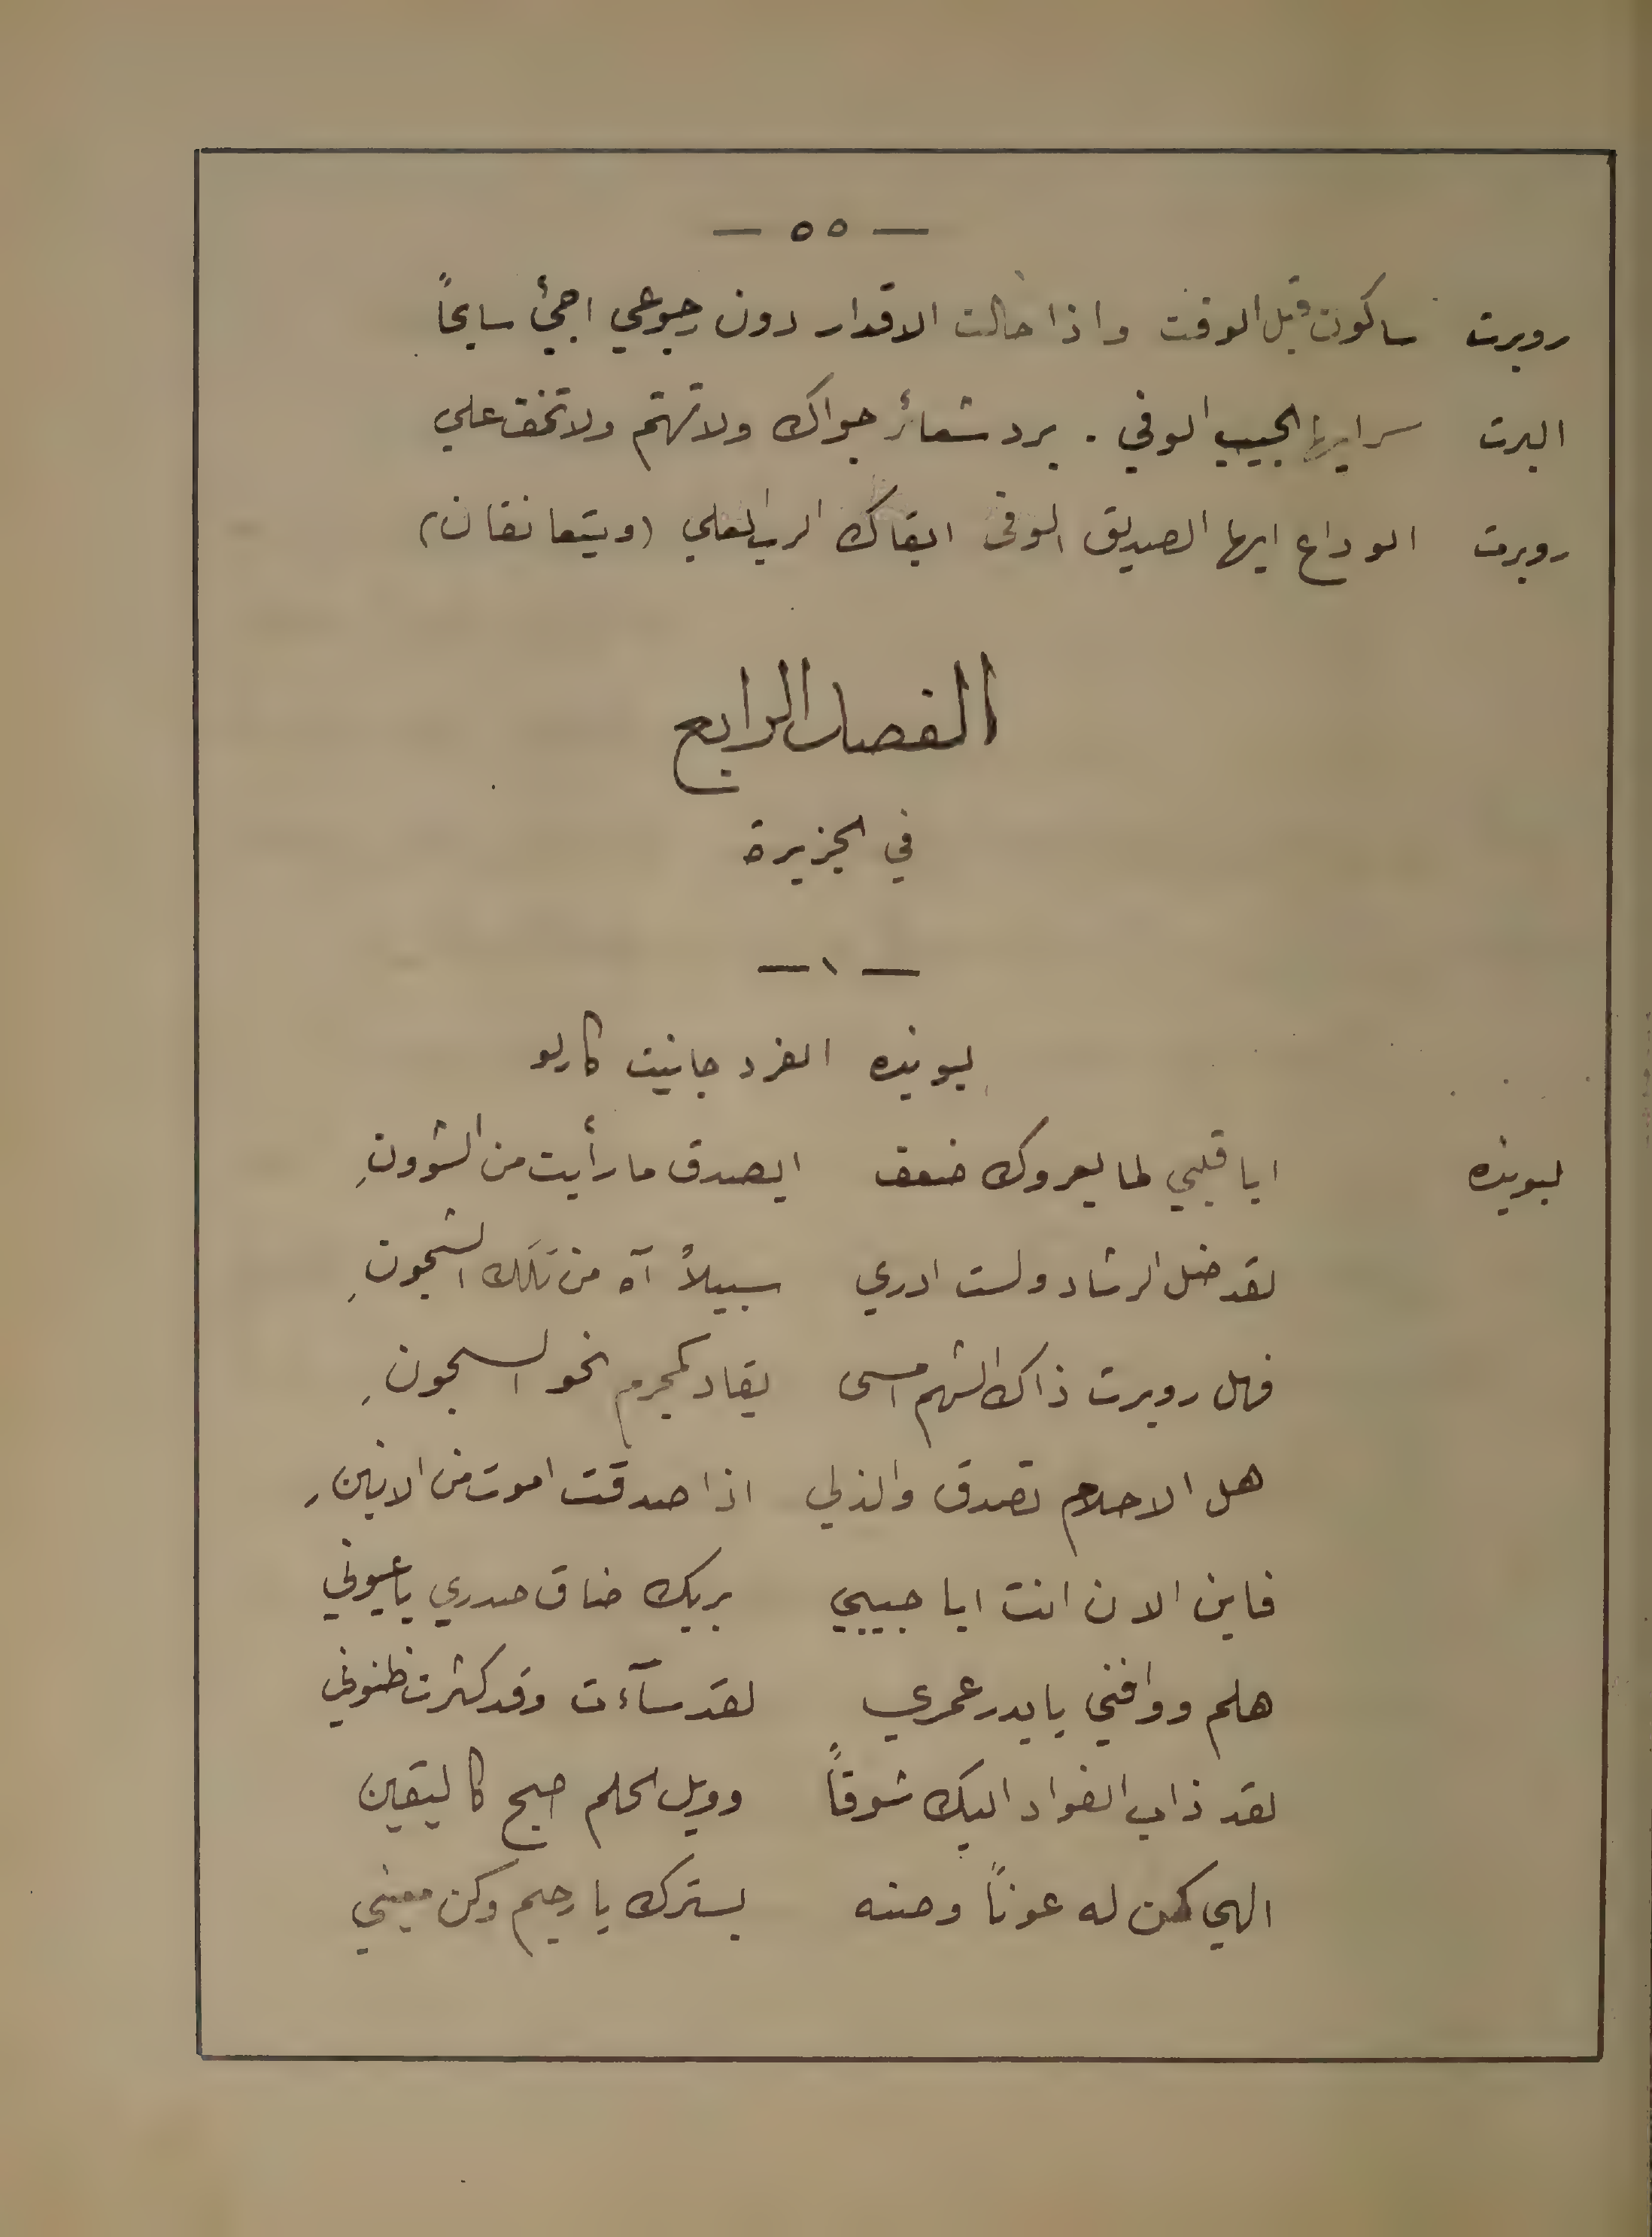 — ٥٥ —
روبرت ساكون قبل الوقت واذا حالت الاقدار دون رجوعي اجئ سابحاً
البرت سر ايها الحبيب الوفي . برد شعائر جواك ولا تهتم ولا تخف علي
روبرت الوداع ايها الصديق الوفى ابقاك الرب العلي (ويتعانقان)
الفصل الرابع
في الجزيرة
— ١ —
ليونيده الفرد جانيت كارلو
ليونيده ايا قلبي لما يعروك ضعف ايصدق ما رأيت من الشوونِ
لقد ضل الرشاد ولست ادري سبيلاً آه من تلك الشجونِ
فهل روبرت ذاك الشهم امسى يقاد كمجرم نحو السجونِ
هل الاحلام تصدق والذلي اذا صدقت اموت من الانينِ
فاين الان انت ايا حبيبي بربك ضاق صدري يا عيوني
هلم ووافني يا بدر عمري لقد سآءت وقد كثرت ظنوني
لقد ذاب الفواد اليك شوقاً وويل الحلم اصبح كاليقين
الهي كن له عوناً وصنه بسترك يا رحيم وكن معيني